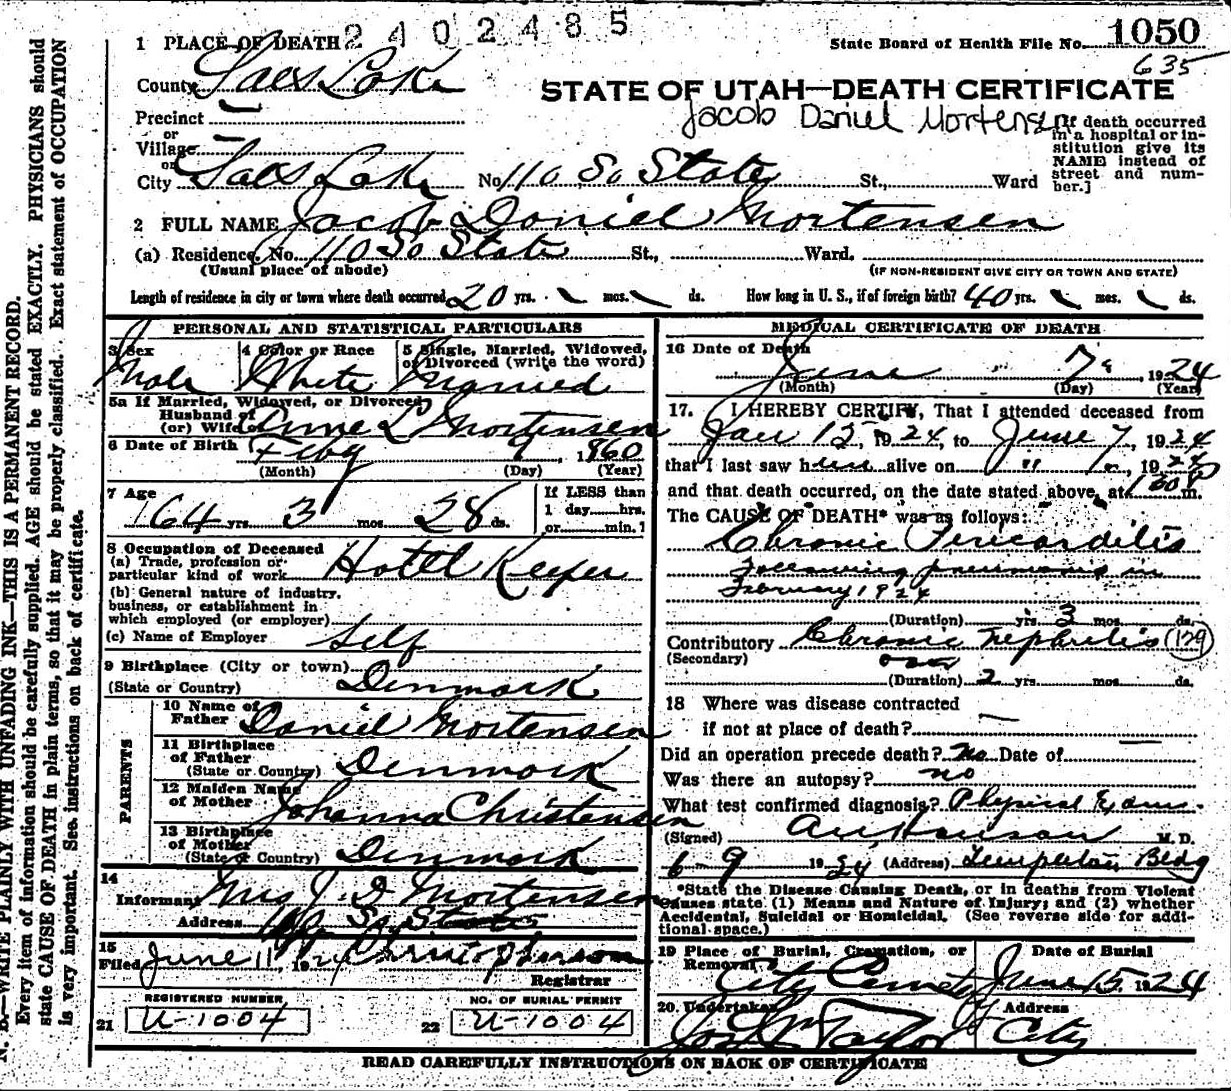 2402485
1 PLACE OF DEATH
State Board of Health File No. 1050
635
County Salt Lake
STATE OF UTAH—DEATH CERTIFICATE
Jacob Daniel Mortensen
Precinct —
or
Village —
or
City Salt Lake No. 110 So State St., Ward
[If death occurred
in a hospital or in-
stitution give its
NAME instead of
street and num-
ber.]
2 FULL NAME Jacob Daniel Mortensen
(a) Residence. No. 110 So State St., Ward.
(Usual place of abode) (IF NON-RESIDENT GIVE CITY OR TOWN AND STATE)
Length of residence in city or town where death occurred 20 yrs. mos. ds. How long in U. S., if of foreign birth? 40 yrs. mos. ds.
PERSONAL AND STATISTICAL PARTICULARS
3 Sex 4 Color or Race 5 Single, Married, Widowed,
or Divorced (write the word)
Male White Married
5a If Married, Widowed, or Divorced
Husband of
(or) Wife of Anne L Mortensen
6 Date of Birth Feby 9, 1860
(Month) (Day) (Year)
7 Age If LESS than
1 day......hrs.
or......min.?
64 yrs 3 mos 28 ds.
8 Occupation of Deceased
(a) Trade, profession or
particular kind of work Hotel Keeper
(b) General nature of industry,
business, or establishment in
which employed (or employer)
(c) Name of Employer Self
9 Birthplace (City or town)
(State or Country) Denmark
PARENTS
10 Name of
Father Daniel Mortensen
11 Birthplace
of Father
(State or Country) Denmark
12 Maiden Name
of Mother Johanna Christensen
13 Birthplace
of Mother
(State or Country) Denmark
14
Informant Mrs J. D Mortensen
Address 110 So State
15
Filed June 11, 19 Christopherson
Registrar
REGISTERED NUMBER NO. OF BURIAL PERMIT
21 U-1004 22 U-1004
MEDICAL CERTIFICATE OF DEATH
16 Date of Death
June 7, 1924
(Month) (Day) (Year)
17. I HEREBY CERTIFY, That I attended deceased from
Jan 12, 1924, to June 7, 1924
that I last saw him alive on " 7, 1924
and that death occurred, on the date stated above, at 130 P m.
The CAUSE OF DEATH* was as follows:
Chronic Pericarditis
following pneumonia in
February 1924
(Duration) yrs. 3 mos. ds.
Contributory Chronic Nephritis 129
(Secondary) over
(Duration) 2 yrs mos ds.
18 Where was disease contracted
if not at place of death? —
Did an operation precede death? No Date of —
Was there an autopsy? no
What test confirmed diagnosis? Physical Exam.
(Signed) M. D.
6-9 1924 (Address) Templeton Bldg
*State the Disease Causing Death, or in deaths from Violent
Causes state (1) Means and Nature of Injury; and (2) whether
Accidental, Suicidal or Homicidal. (See reverse side for addi-
tional space.)
19 Place of Burial, Cremation, or
Removal Date of Burial
City Cemet June 15, 1924
20. Undertaker Address
Jos Wm Taylor City
READ CAREFULLY INSTRUCTIONS ON BACK OF CERTIFICATE
N. B.—WRITE PLAINLY WITH UNFADING INK—THIS IS A PERMANENT RECORD.
Every item of information should be carefully supplied. AGE should be stated EXACTLY. PHYSICIANS should
state CAUSE OF DEATH in plain terms, so that it may be properly classified. Exact statement of OCCUPATION
is very important. See instructions on back of certificate.